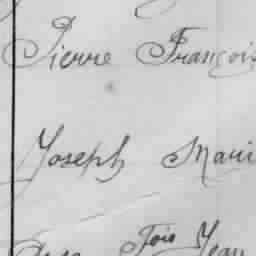 Pierre François
Joseph Marie
Jean